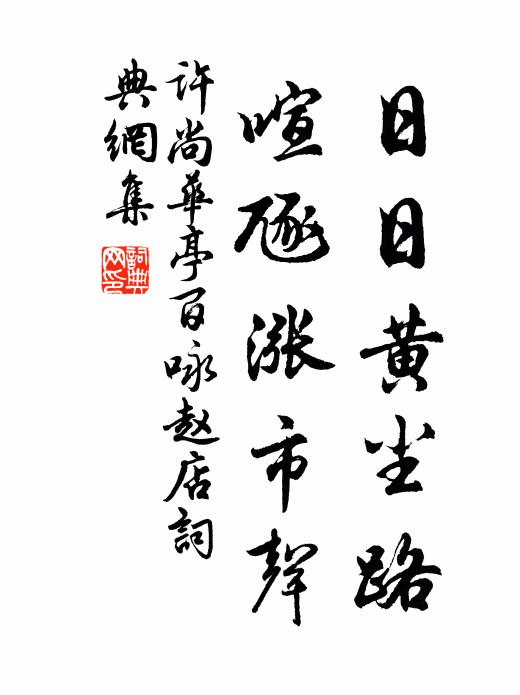 日日黄尘路
喧豗涨市聲
許尚華亭百咏赵店詞
典網集
詞典网印